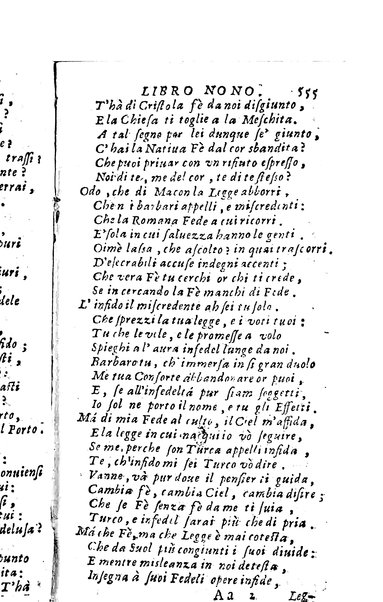 LIBRO NONO. 555
T'hà di Cristo la fè da noi disgiunto,
E la Chiesa ti toglie a la Meschita.
A tal segno per lei dunque se' giunto,
C'hai la Nativa Fè dal cor sbandita?
Che puoi privar con vn rifiuto espresso,
Noi di te, me del cor, te di te stesso?
Odo, che di Macon la Legge abborri.
Che noi barbari appelli, e miscredenti:
Che la Romana Fede a cui ricorri.
E' sola in cui saluezza hanno le genti.
Oimè lassa, che ascolto? in quai trascorri.
D'esecrabili accuse indegni accenti;
Che vera Fè tu cerchi or chi ti crede,
Se in cercando la Fè manchi di Fede.
L'infido il miscredente ah sei tu solo.
Che sprezzi la tua legge, e i voti tuoi:
Tu che le vele, e le promesse a volo
Spieghi a l'aura infedel lunge da noi.
Barbaro tu, ch'immersa in sì gran duolo
Me tua Consorte abbandonare or puoi,
E, se all'infedeltà pur siam soggetti,
Io sol ne porto il nome, e tu gli Effetti.
Mà di mia Fede al culto, il Ciel m'affida,
E la legge in cui nacqui io vò seguire,
Se me, perche son Turca appelli infida,
Te, ch'infido mi sei Turco vò dire.
Vanne, và pur doue il pensier ti guida,
Cambia fè, cambia Ciel, cambia disire;
Che se Fè senza fè da me ti suia,
Turco, e infedel sarai più che di pria.
Mà che Fè, ma che Legge è mai cotesta,
Che da Suol più congiunti i suoi diuide:
E mentre misleanza in noi detesta,
Insegna à suoi Fedeli opere infide,
Aa 2 Leg-
trassi?
nte?
strai?
errai,
puri
iuri,
dele
fido;
sti,
asti
rto,
l Porto.
onuiensi
si
delusa?
punto
ita:
T'hà